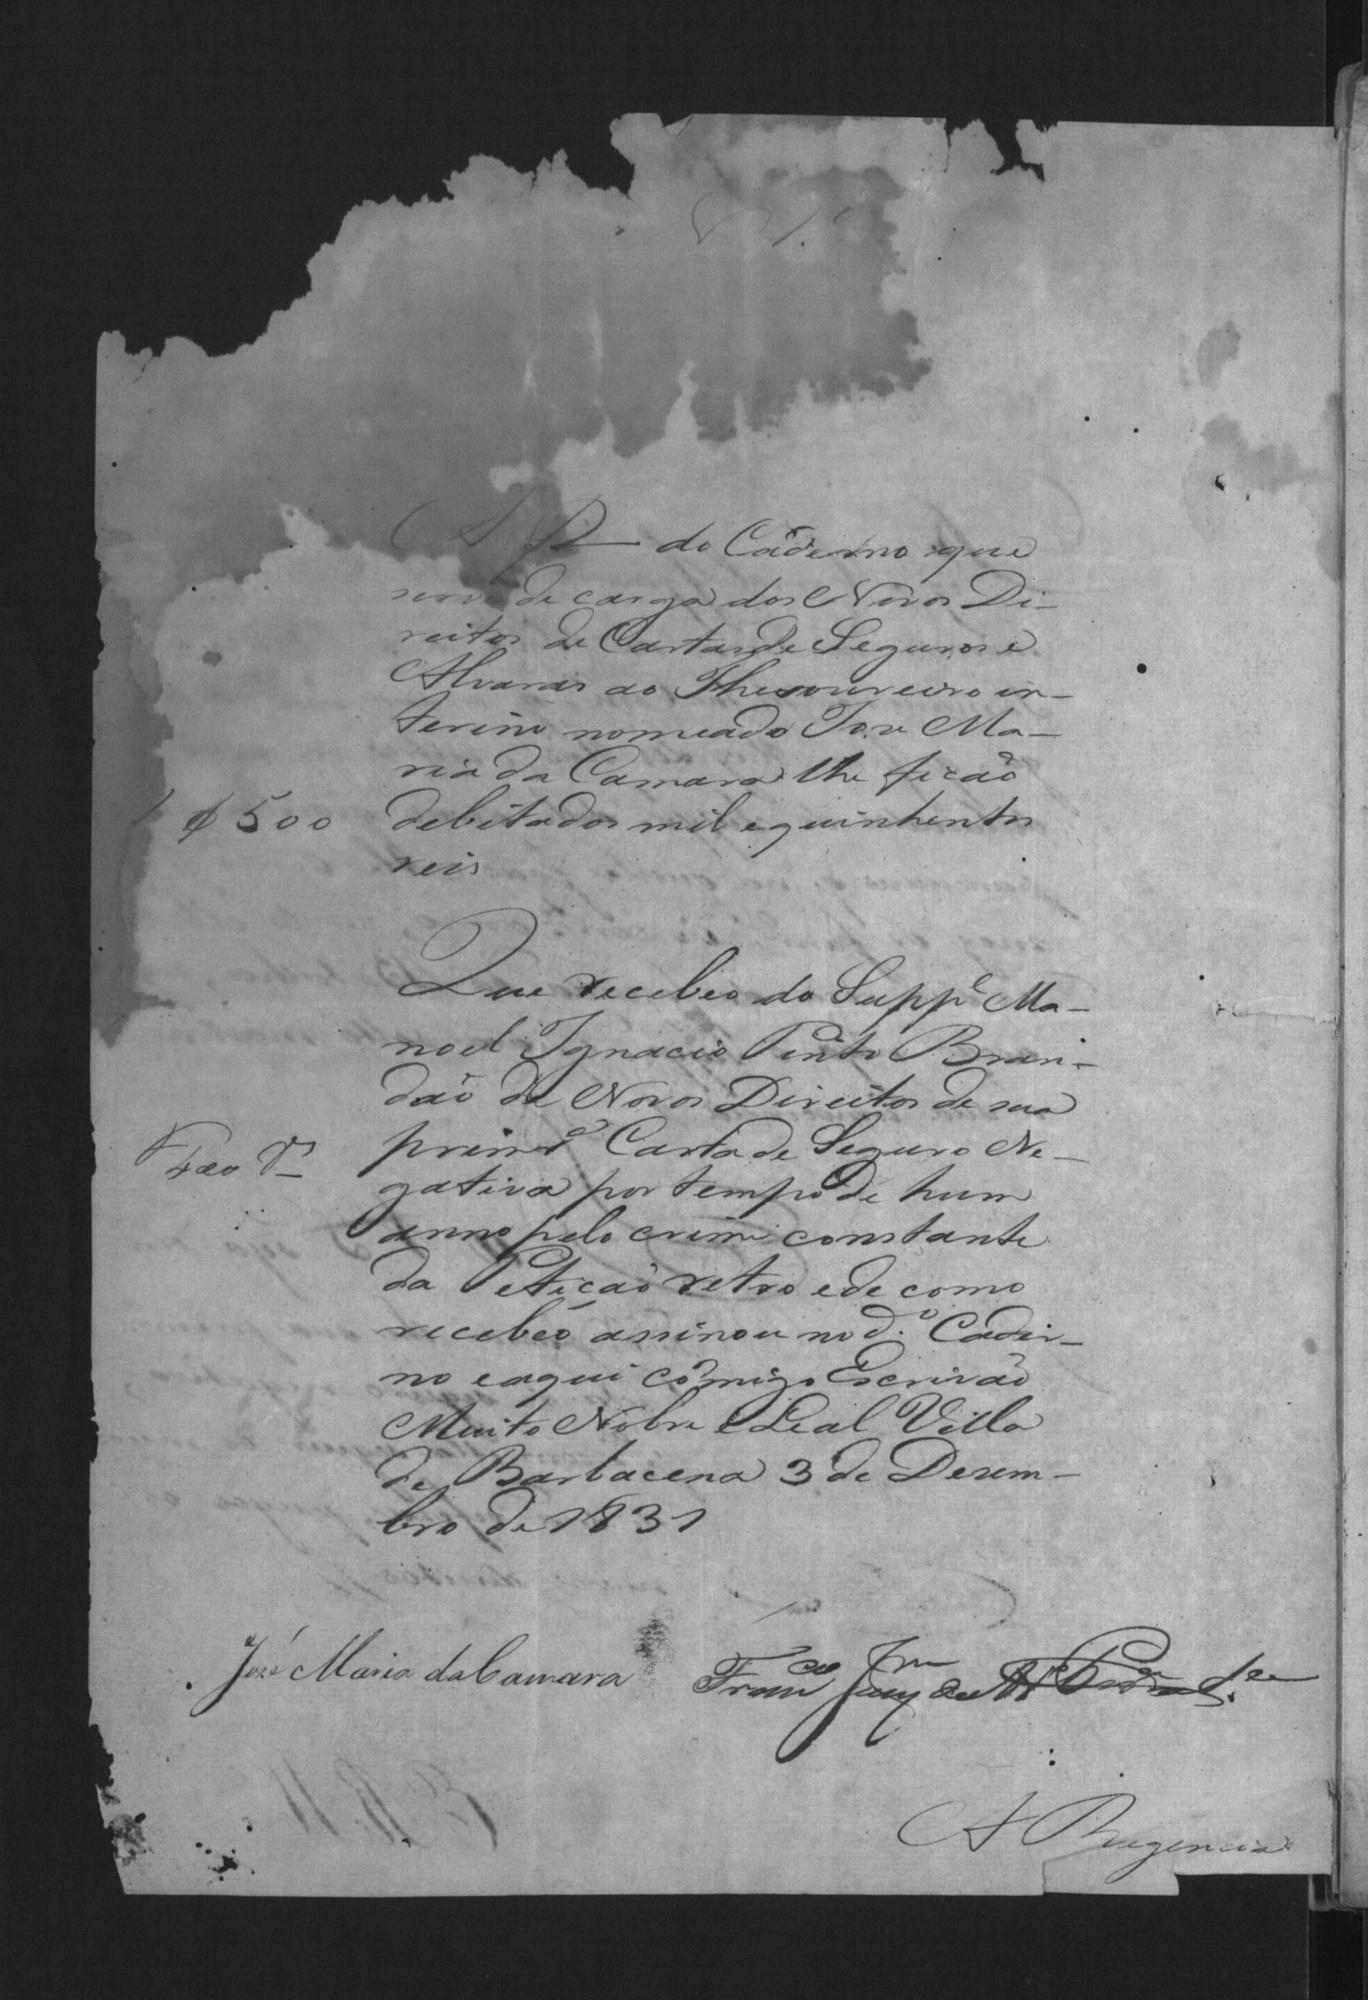 A f do Caderno que
serve de carga dos Novos Di-
reitos de Cartas de Seguros e
Alvaras ao Thesoureiro in-
terino nomeado Joze Ma-
ria da Camara lhe ficaõ
1$500 debitados mil e quinhentos
reis
Que recebeo do Supp.e Ma-
noel Ignacio Pinto Bran-
daõ de Novos Direitos de sua
prim.ra Carta de Seguro Ne-
gativa por tempo de hum
anno pelo crime constante
da Petiçaõ retro e de como
recebéo assinou no d.o Cader-
no e aqui comigo Escrivaõ
Muito Nobre e Leal Villa
de Barbacena 3 de Dezem-
bro de 1831
José Maria da Camara
Fran.co
A Regencia